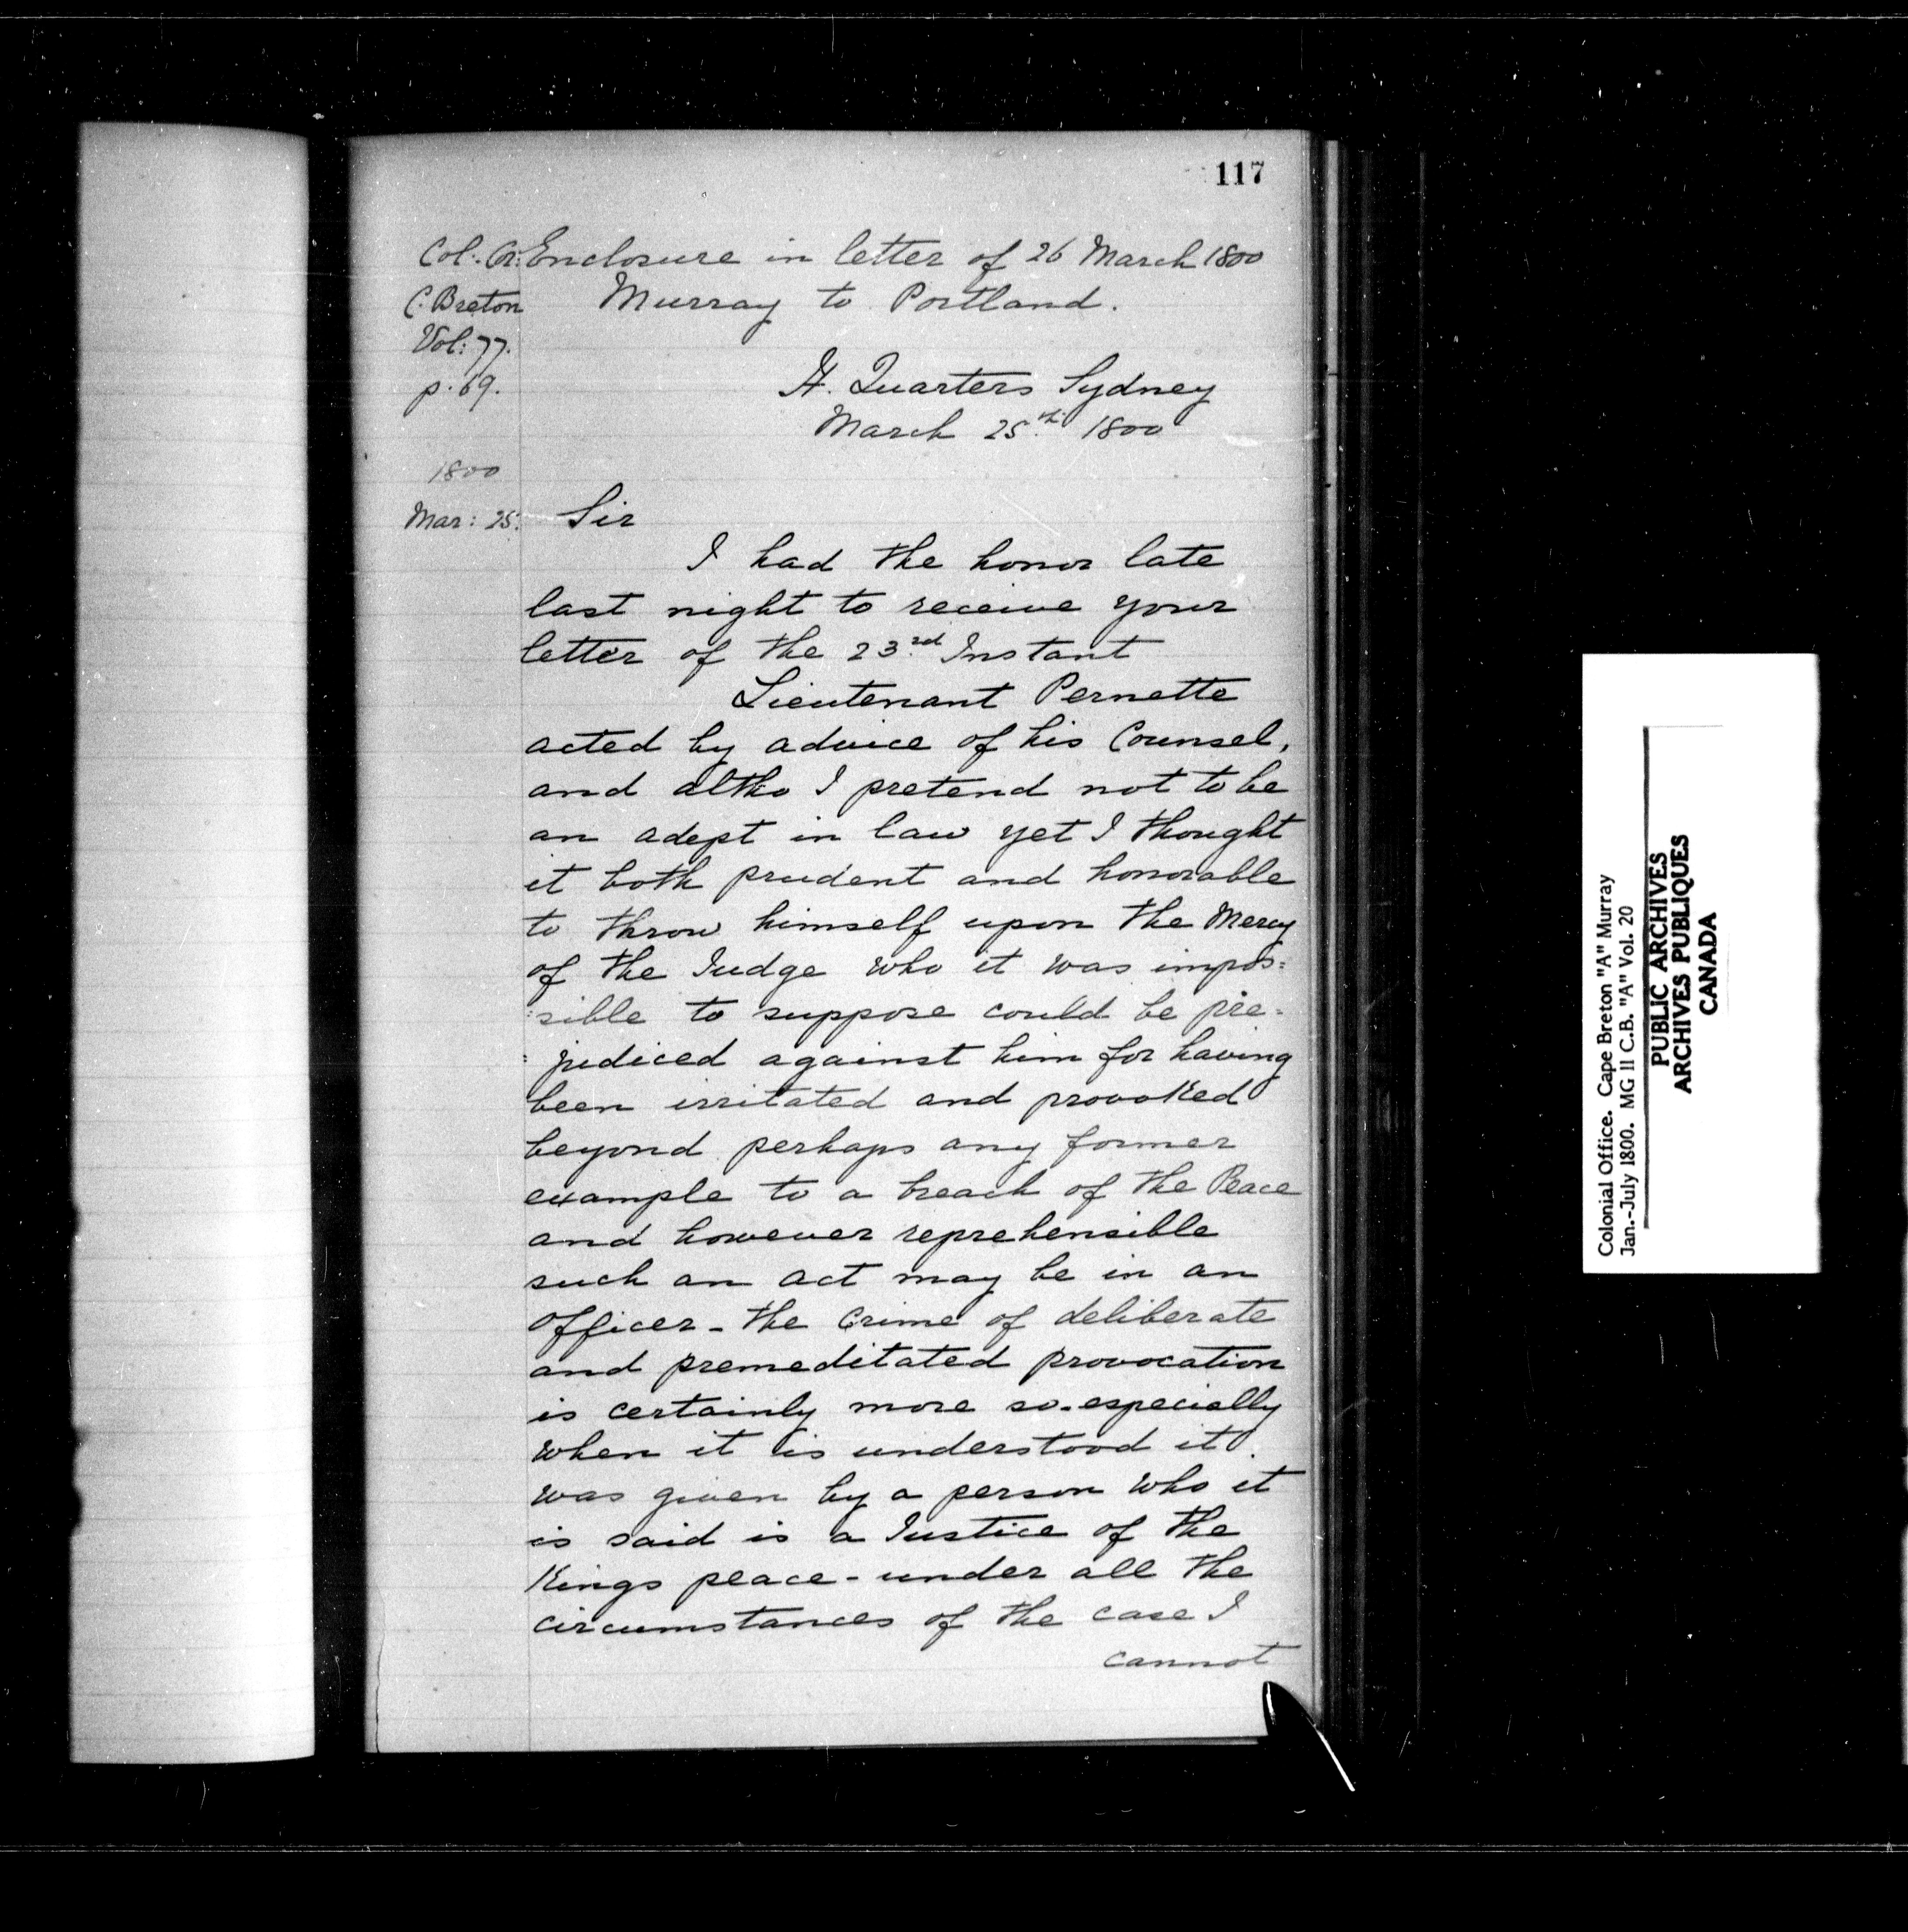 117
Col: Cor: Enclosure in letter of 26 March 1800
C. Breton Murray to Portland.
Vol: 77.
p. 69.
H. Quarters Sydney
March 25th 1800
1800
Mar: 25: Sir
I had the honor late
last night to receive your
letter of the 23rd Instant
Lieutenant Pernette
acted by advice of his Counsel,
and altho I pretend not to be
an adept in law yet I thought
it both prudent and honorable
to throw himself upon the Mercy
of the Judge who it was impos=
=sible to suppose could be pre=
=judiced against him for having
been irritated and provoked
beyond perhaps any former
example to a breach of the Peace
and however reprehensible
such an act may be in an
officer - the Crime of deliberate
and premeditated provocation
is certainly more so - especially
when it is understood it
was given by a person who it
is said is a Justice of the
Kings peace - under all the
circumstances of the case I
cannot
Colonial Office. Cape Breton "A" Murray
Jan.-July 1800. MG 11 C.B. "A" Vol. 20
PUBLIC ARCHIVES
ARCHIVES PUBLIQUES
CANADA